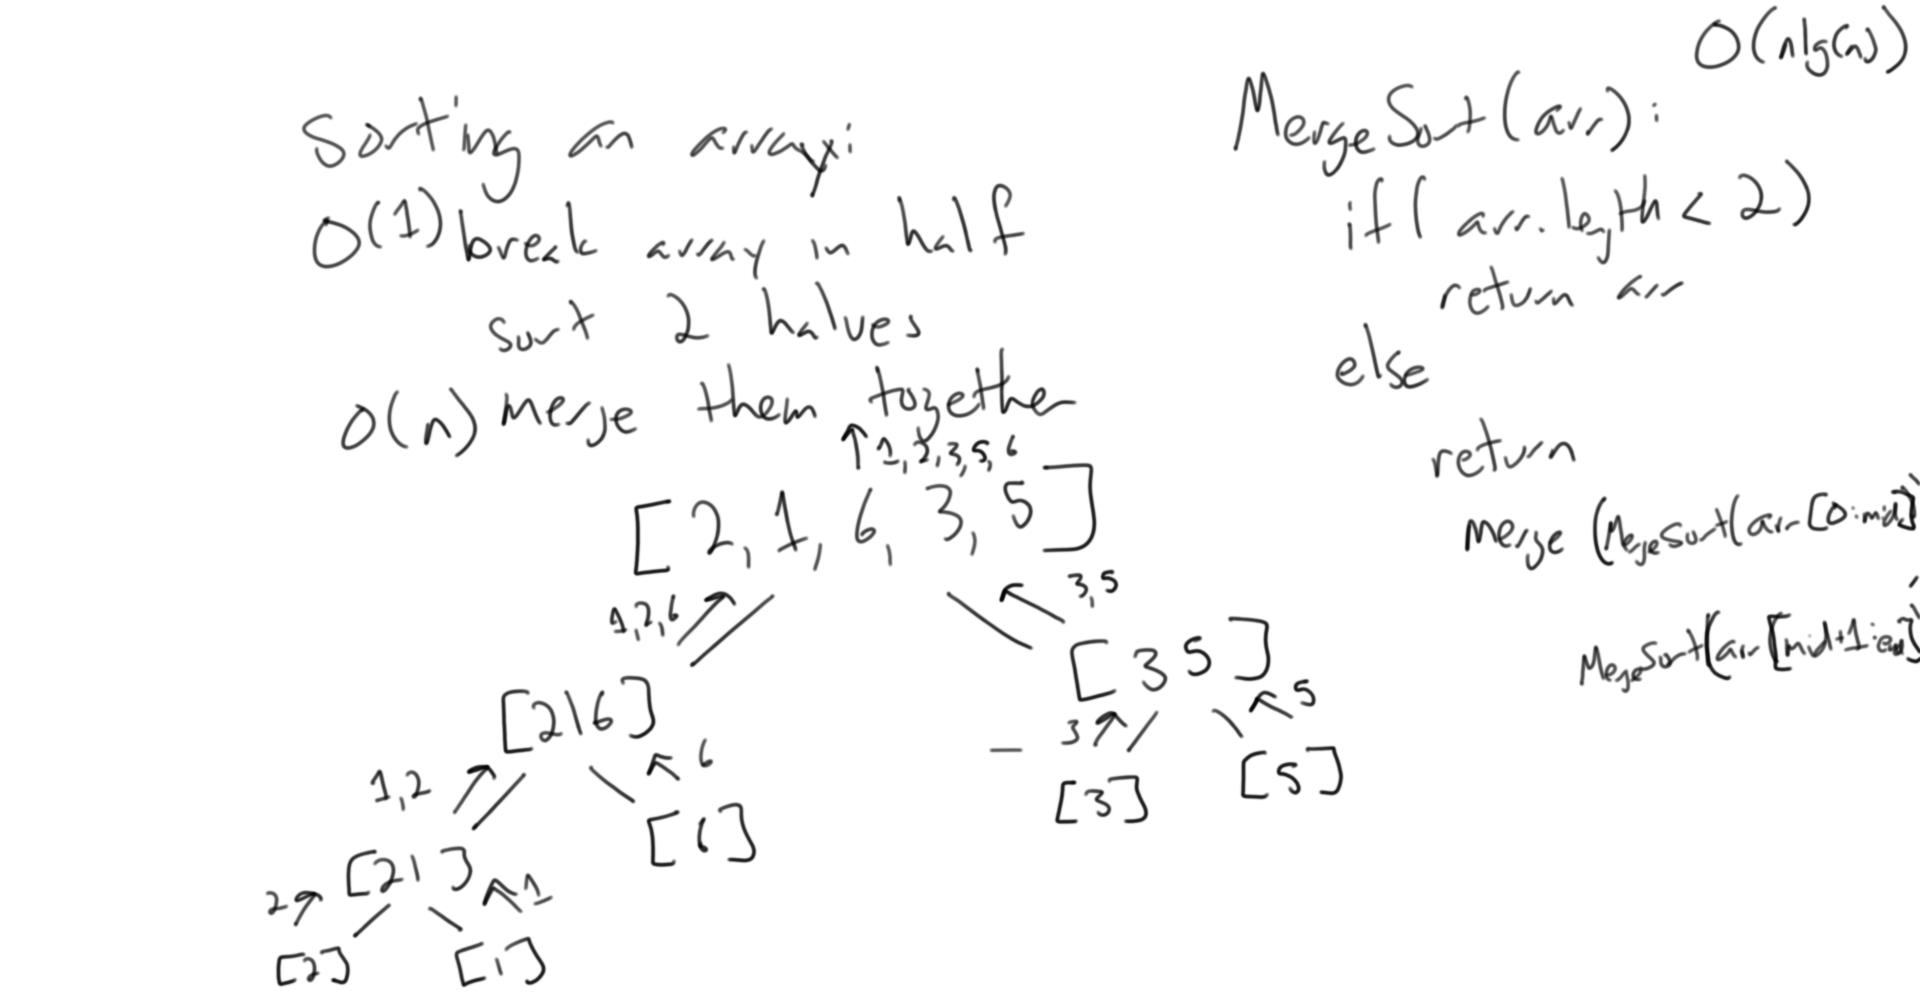 Sorting an array:
O(1) break array in half
sort 2 halves
O(n) merge them together
↑ 1, 2, 3, 5, 6
[2, 1, 6, 3, 5]
1, 2, 6
3, 5
[2 1 6]
[3 5]
1, 2
6
3
5
[2 1]
[6]
[3]
[5]
2
1
[2]
[1]
O(nlg(n))
MergeSort(arr):
if( arr.length < 2)
return arr
else
return
merge (MergeSort(arr[0:mid])
,
MergeSort(arr[mid+1:end])